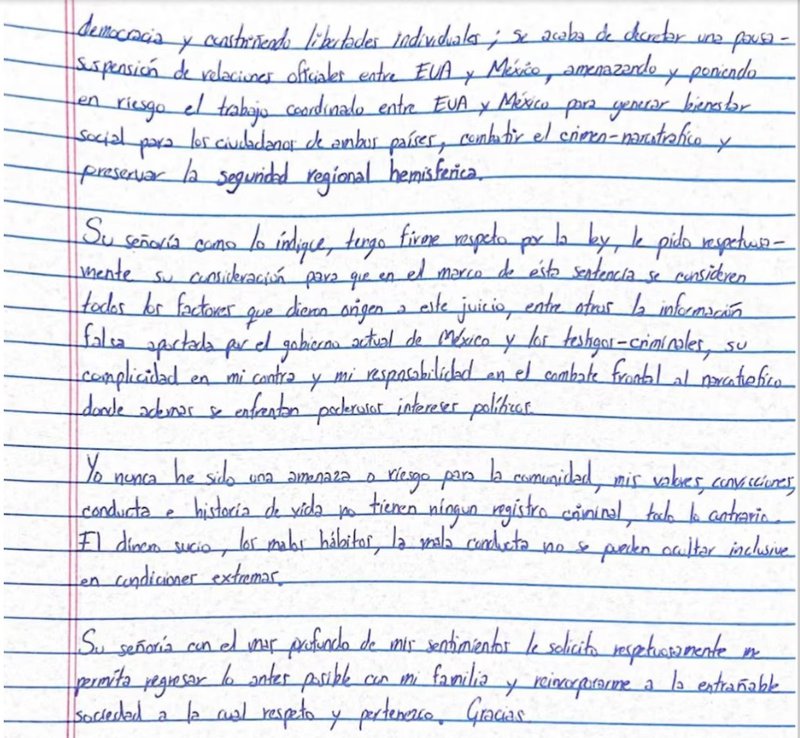 democracia y constriñendo libertades individuales; se acaba de decretar una pausa-
suspensión de relaciones oficiales entre EUA y México, amenazando y poniendo
en riesgo el trabajo coordinado entre EUA y México para generar bienestar
social para los ciudadanos de ambos países, combatir el crimen-narcotrafico y
preservar la seguridad regional hemisferica.
Su señoría como lo indique, tengo firme respeto por la ley, le pido respetuosa-
mente su consideración para que en el marco de ésta sentencia se consideren
todos los factores que dieron origen a este juicio, entre otros la información
falsa aportada por el gobierno actual de México y los testigos-criminales, su
complicidad en mi contra y mi responsabilidad en el combate frontal al narcotrafico
donde ademas se enfrentan poderosos intereses políticos.
Yo nunca he sido una amenaza o riesgo para la comunidad, mis valores, convicciones,
conducta e historia de vida no tienen ningun registro criminal, todo lo contrario.
El dinero sucio, los malos hábitos, la mala conducta no se pueden ocultar inclusive
en condiciones extremas.
Su señoría con el mas profundo de mis sentimientos le solicito respetuosamente me
permita regresar lo antes posible con mi familia y reincorporarme a la entrañable
sociedad a la cual respeto y pertenezco. Gracias.